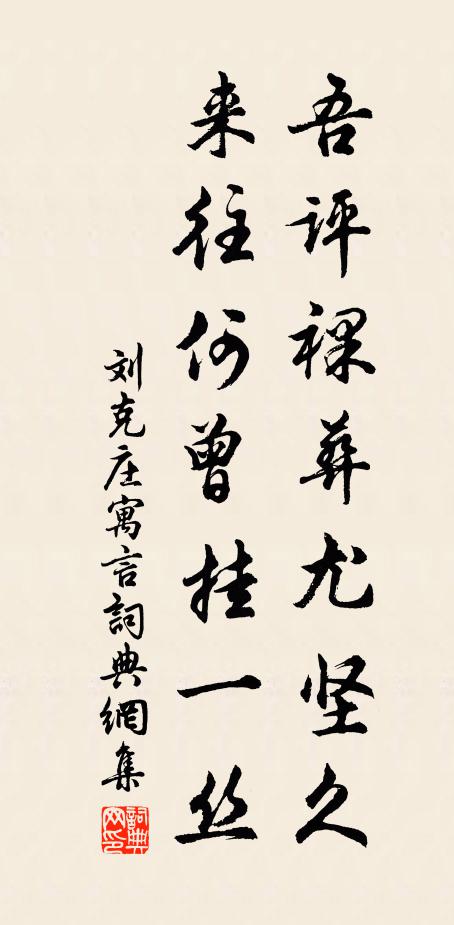 吾评裸葬尤坚久
来往何曾挂一丝
刘克庄寓言詞典網集
詞典
网印